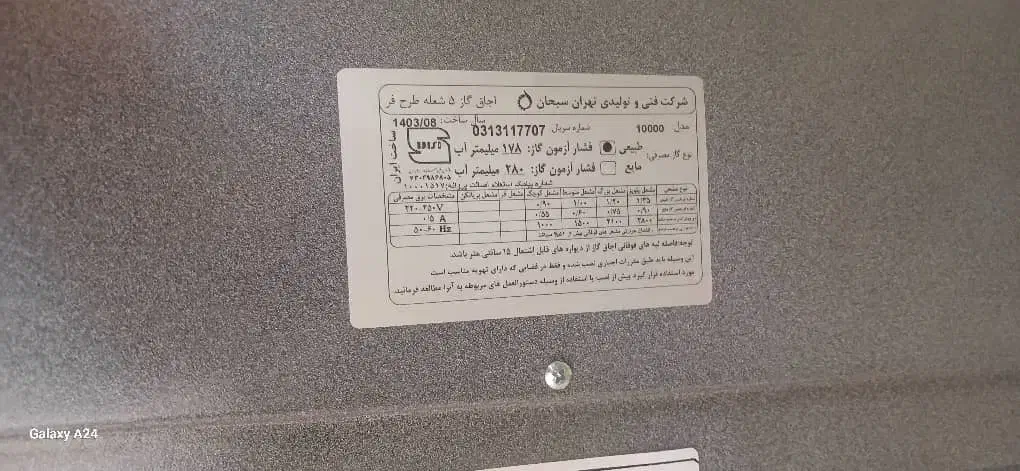 شرکت فنی و تولیدی تهران سبحان اجاق گاز ۵ شعله طرح فر
مدل 10000 شماره سریال 0313117707 سال ساخت: 1403/08
ساخت ایران
نوع گاز مصرفی: طبیعی فشار آزمون گاز: ۱۷۸ میلیمتر آب
مایع فشار آزمون گاز: ۲۸۰ میلیمتر آب
نوع مشعل مشعل پلوپز مشعل بزرگ مشعل متوسط مشعل کوچک مشعل فر مشعل بریانکن مشخصات برق مصرفی
۱/۳۵ ۱/۲۰ ۱/۰۰ ۰/۹۰ ۲۲۰-۲۵۰V
۰/۹۰ ۰/۷۵ ۰/۶۰ ۰/۵۵ ۰/۵ A
۲۸۰۰ ۲۱۰۰ ۱۵۰۰ ۱۰۰۰ ۵۰-۶۰ Hz
توجه:فاصله لبه های فوقانی اجاق گاز از دیواره های قابل اشتعال ۱۵ سانتی متر باشد.
این وسیله باید طبق مقررات اجباری نصب شده و فقط در فضایی که دارای تهویه مناسب است
مورد استفاده قرار گیرد پیش از نصب یا استفاده از وسیله دستورالعمل های مربوطه به آنرا مطالعه فرمائید.
Galaxy A24